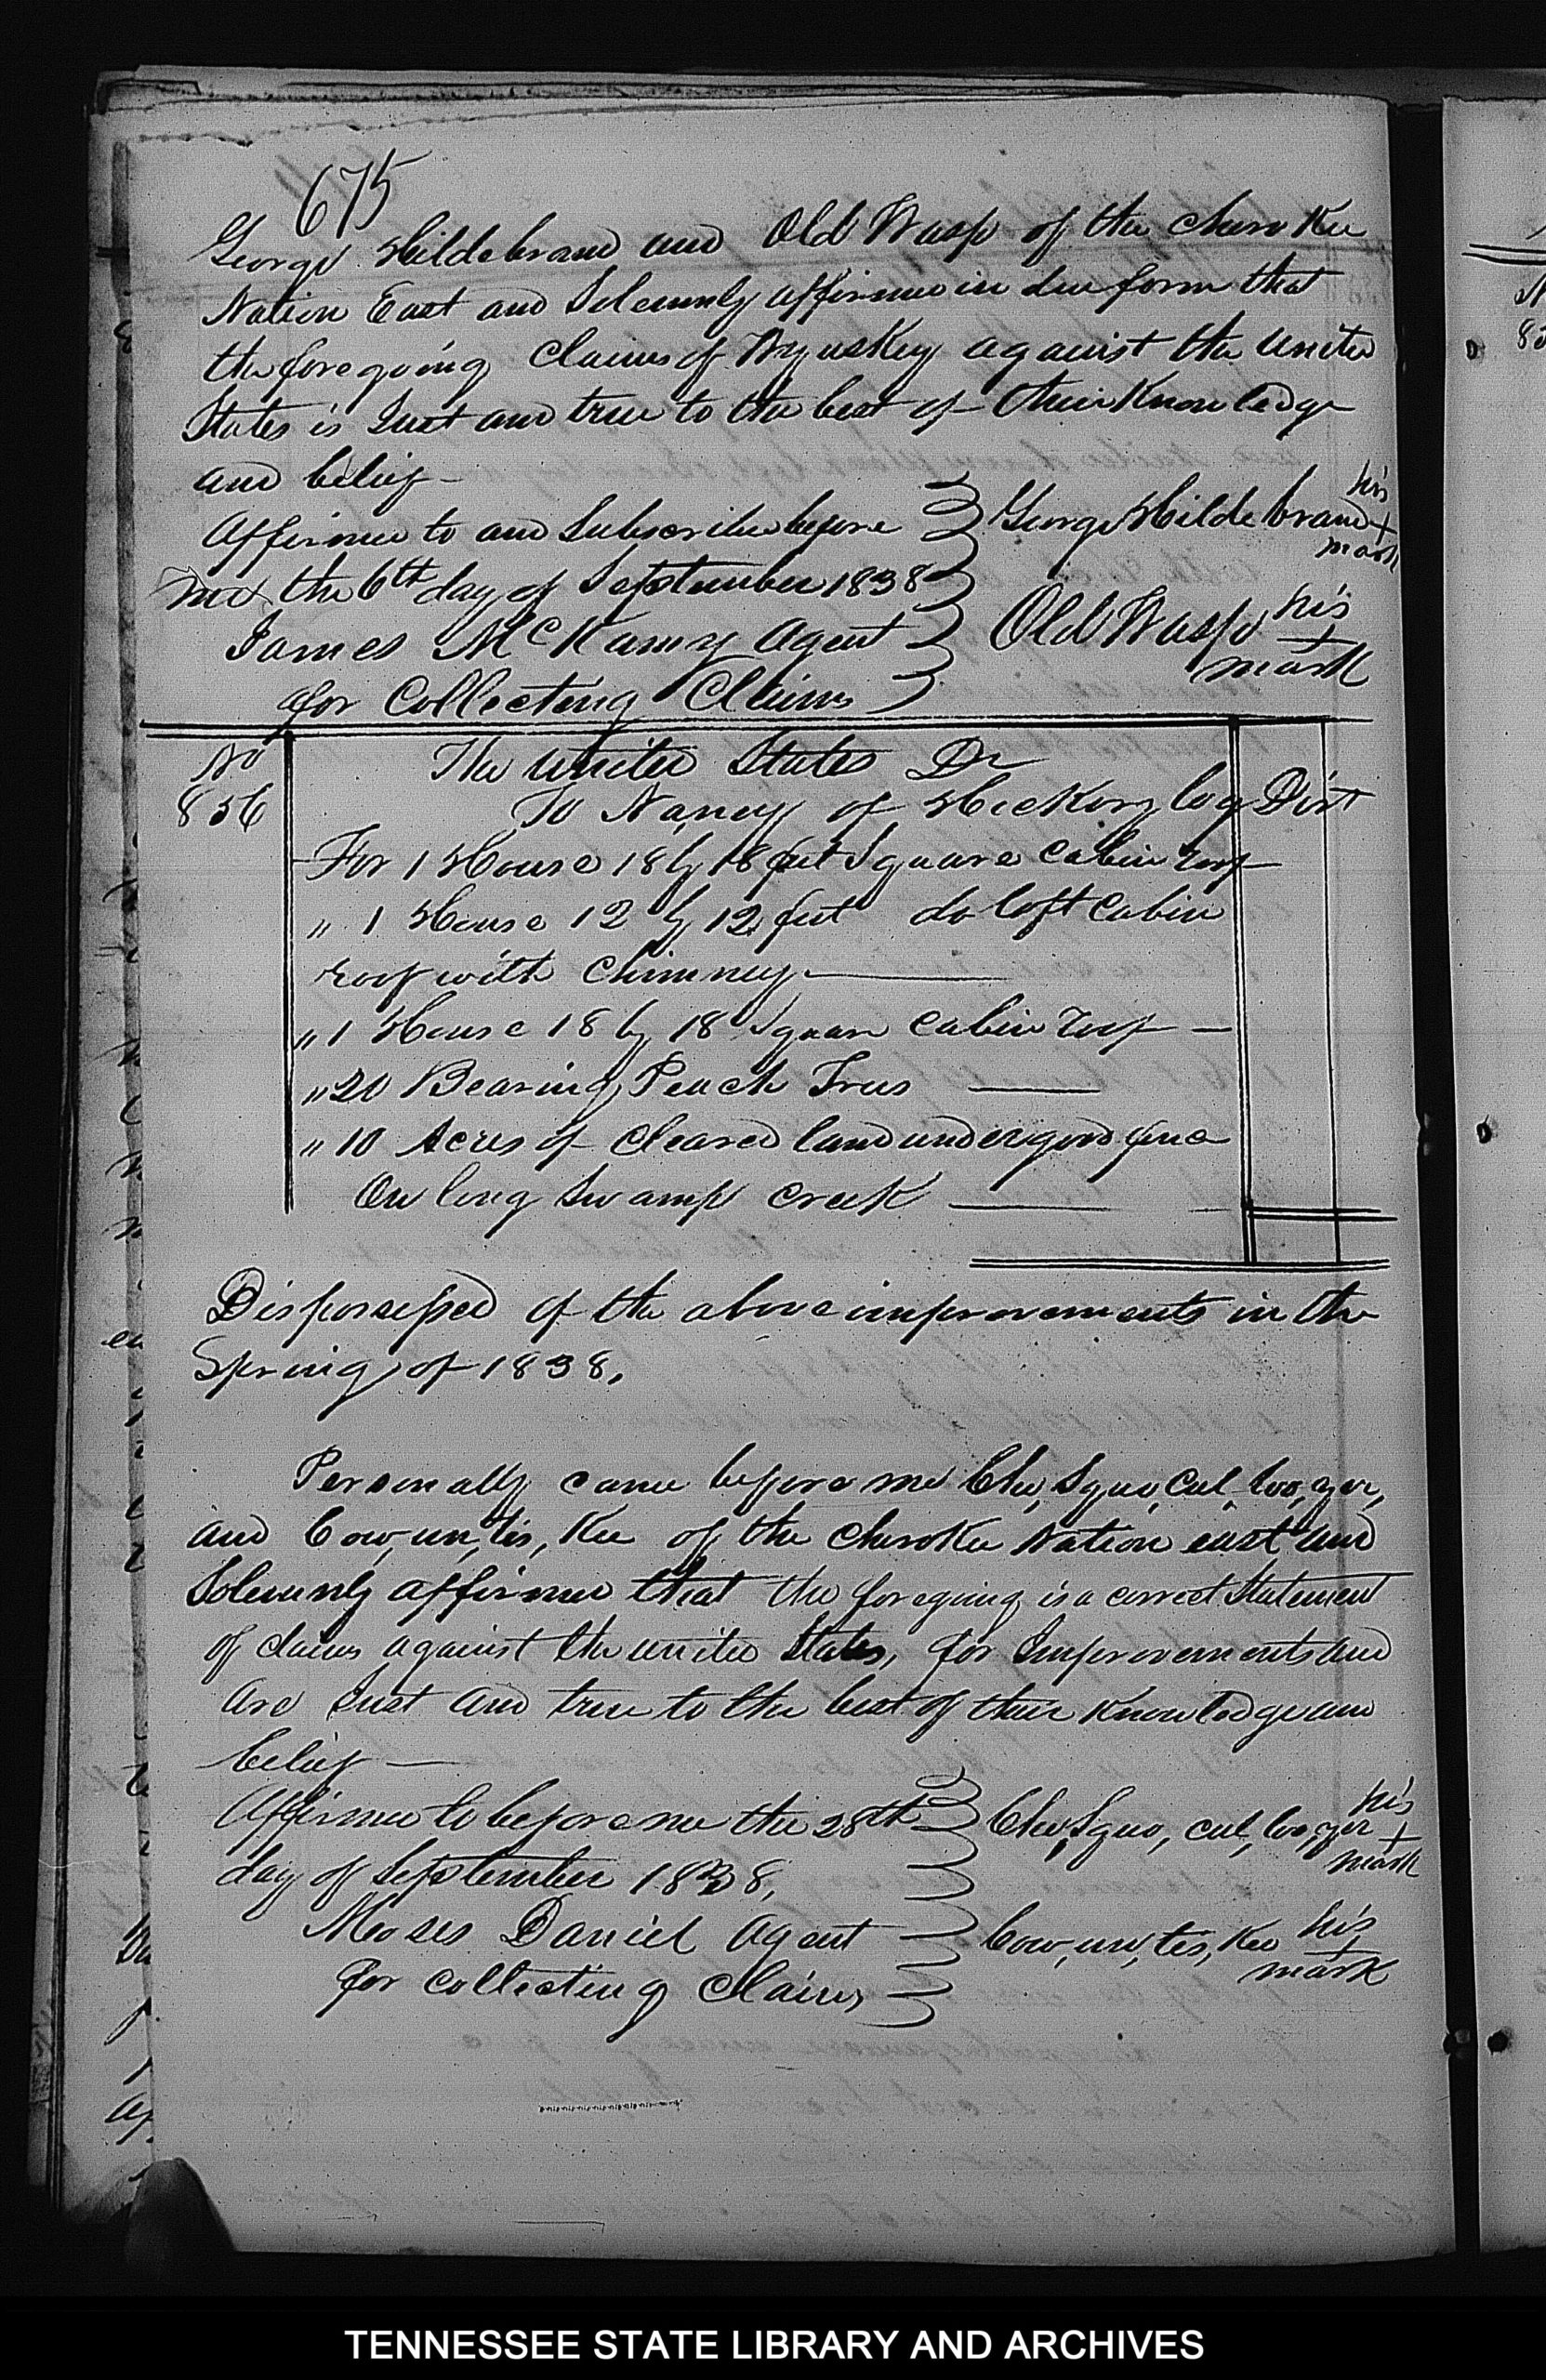 675
George Hildebrand and Old Wasp of the Cherokee
Nation East and Solemnly affirmed in due form that
the foregoing Claims of Wyuskey against the United
States is Just and true to the best of their Knowledge
and belief
Affirmed to and Subscribed before
me the 6th day of September 1838
James McKamy Agent
for Collecting Claims
George Hildebrand his + mark
Old Wasp his + mark
No
856
The United States Dr
To Nancy of Hickory log Dist
For 1 House 18 by 18 feet Square Cabin roof
" 1 House 12 by 12 feet do loft Cabin
roof with Chimney
" 1 House 18 by 18 Square Cabin roof
" 20 Bearing Peach Trees
" 10 Acres of Cleared land under good fence
On long Swamp Creek
Dispossessed of the above improvements in the
Spring of 1838,
Personally came before me Chu, Squo, Cul, loo, ger,
and Cow, un, tis, Kee of the Cherokee Nation east and
Solemnly affirmed that the foregoing is a correct Statement
of claims against the United States, for Improvements and
are Just and true to the best of their Knowledge and
belief
Affirmed to before me the 28th
day of September 1838,
Moses Daniel Agent
for collecting Claims
Chu, Squo, cul, loo, ger his + mark
Cow, un, tis, Kee his + mark
N
TENNESSEE STATE LIBRARY AND ARCHIVES